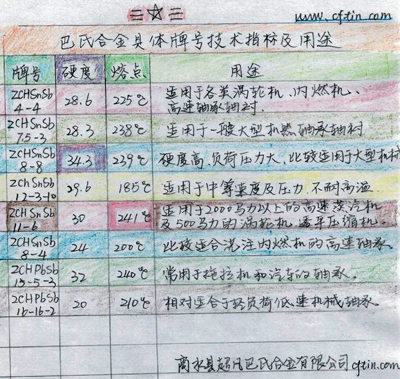 www.cftin.com
巴氏合金具体牌号技术指标及用途
牌号 硬度 熔点 用途
ZCHSnSb 4-4 28.6 225℃ 适用于各类涡轮机、内燃机、
高速轴承轴衬.
ZCHSnSb 7.5-3 28.3 238℃ 适用于一般大型机器轴承轴衬
ZCHSnSb 8-8 34.3 239℃ 硬度高,负荷压力大,比较适用于大型机械
ZChSnSb 12-3-10 29.6 185℃ 适用于中等重度及压力,不耐高温
ZCHSnSb 11-6 30 241℃ 适用于2000马力以上的高速蒸汽机
及500马力的涡轮机,透平压缩机.
ZCHSnSb 8-4 24 200℃ 比较适合浇注内燃机的高速轴承.
ZCHPbSb 15-5-3 32 240℃ 常用于拖拉机和汽车的轴承.
ZCHPbSb 16-16-2 20 210℃ 相对适合于轻负荷低速机械轴承.
商水县超凡巴氏合金有限公司cftin.com